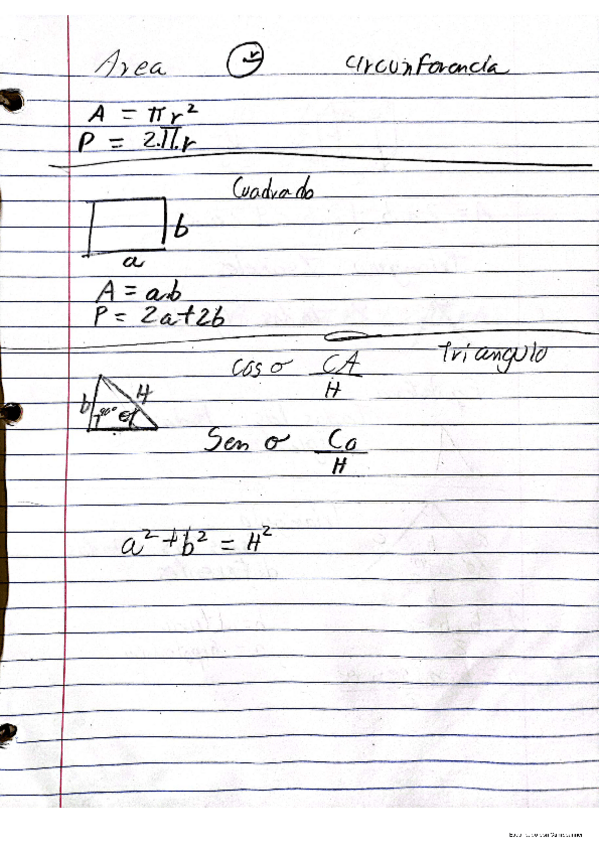 Area r circunferencia
A = πr²
P = 2.π.r
Cuadrado
b
a
A = a.b
P = 2a+2b
Triangulo
cos σ CA
H
b H
90° θ
Sen σ Co
H
a² + b² = H²